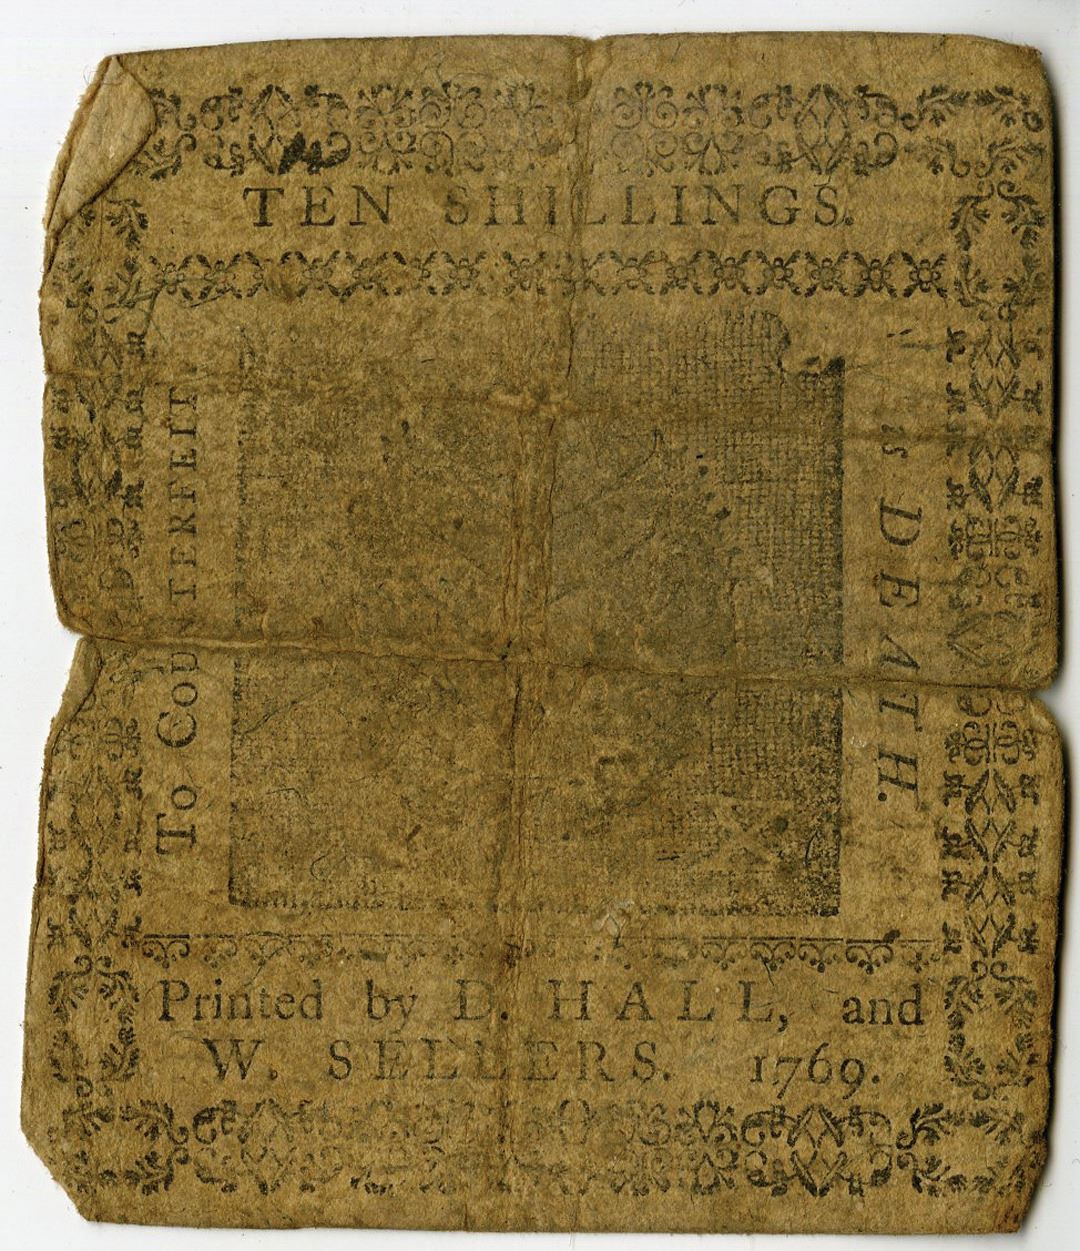 TEN SHILLINGS.
To COUNTERFEIT
is DEATH.
Printed by D. HALL, and
W. SELLERS. 1769.